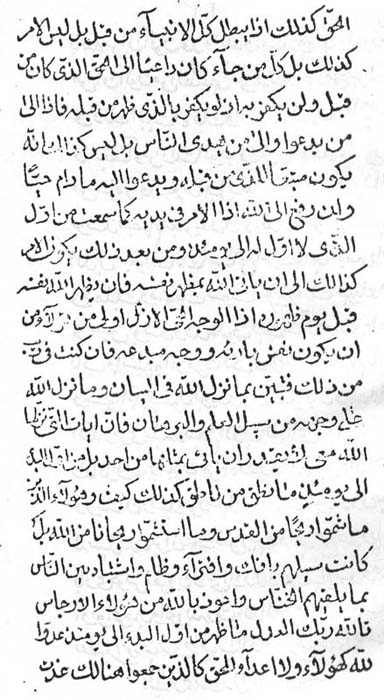 الحقّ كذلك اذا يبطل كلّ الانبيآء من قبل بل ليس الامر
كذلك بل كلّ من جآء كان داعيًا الى الحقّ الذّى كان من
قبل ولن يكفر به اذ لو يكفر بالذّى ظهر من قبله فاذا الى
من يدعوا والى من يهدى النّاس بل ليس كذا انّه
يكون مثبتا للذى من قبله ويدعوا اليه ما دام حيًّا
وان رفع الى الله اذا الامر فى يديه كما سمعت من اوّل
الذّى لا اوّل له الى يومئذ ومن بعد ذلك يكون الامر
كذالك الى ان يأتى الله بمظهر نفسه فان يظهر الله نفسه
قبل يوم ظهوره اذا الوجه الحىّ الازل اولى من
ان يكون نفس بارئه ووجه مبدعه فان كنت فى ريب
من ذلك فتبيّن بما نزل الله فى البيان وما نزل الله
على وجهه من سبل العلم والبرهان فانّ ايات التّى
الله معى لن يقدر ان يأتى بمثلها من احد بل من
الى يومئذ ما نطق من ناطق كذلك كيف وهؤلآء الذّين
ما شمّوا ريحًا من القدس وما استشمّوا ريحانا من الله بل
كانت سبيلهم بافك وافترآء وظلم واشتهاد بين النّاس
بما يلقيهم الخنّاس واعوذ بالله من هؤلاء الارجاس
فالله ربّك العدل ما ظهر من اوّل البدء الى يومئذ عدوّا
لله كهؤلآء ولا اعدآء الحقّ كالذّين جمعوا هنالك